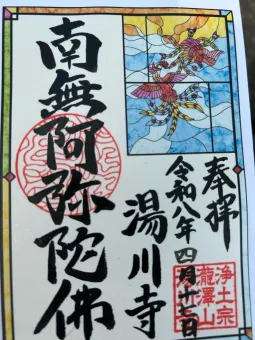 奉拝
令和八年四月廿二日
湯川寺
南無阿弥陀佛
浄土宗
瀧澤山